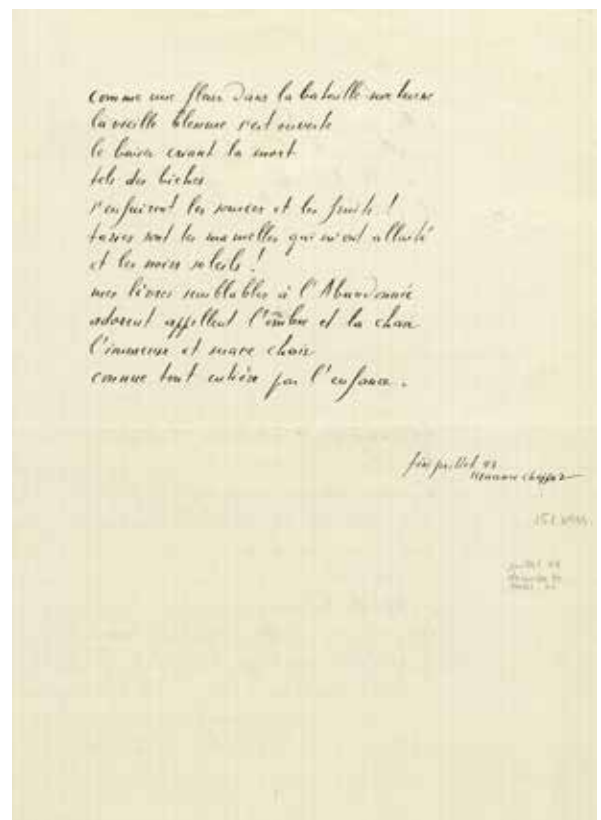 comme une fleur dans la bataille nocturne
la vieille blessure s'est ouverte
le baiser criant la mort
tels des biches
s'enfuirent les sources et les fruits !
taries sont les mamelles qui m'ont allaité
et les noirs soleils !
mes lèvres semblables à l'Abandonnée
adorent appellent l'ombre et la chair
l'immense et suave chair
connue tout entière par l'enfance.
fin juillet
juillet